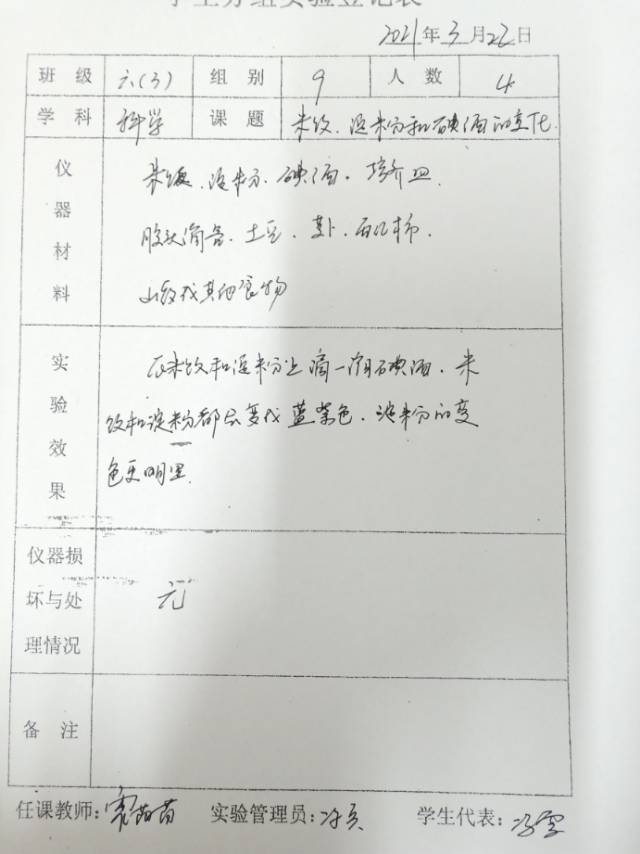 学生分组实验登记表
2021年3月22日
班级 六(3) 组别 9 人数 4
学科 科学 课题 米饭、淀粉和碘酒的变化
仪器材料 米饭、淀粉、碘酒、培养皿、
胶头滴管、土豆、萝卜、西红柿、
山药或其他食物
实验效果 在米饭和淀粉上滴一滴碘酒、米
饭和淀粉都会变成蓝紫色、淀粉的变
色更明显
仪器损坏与处理情况 无
备注
任课教师: 苗苗 实验管理员: 学生代表: